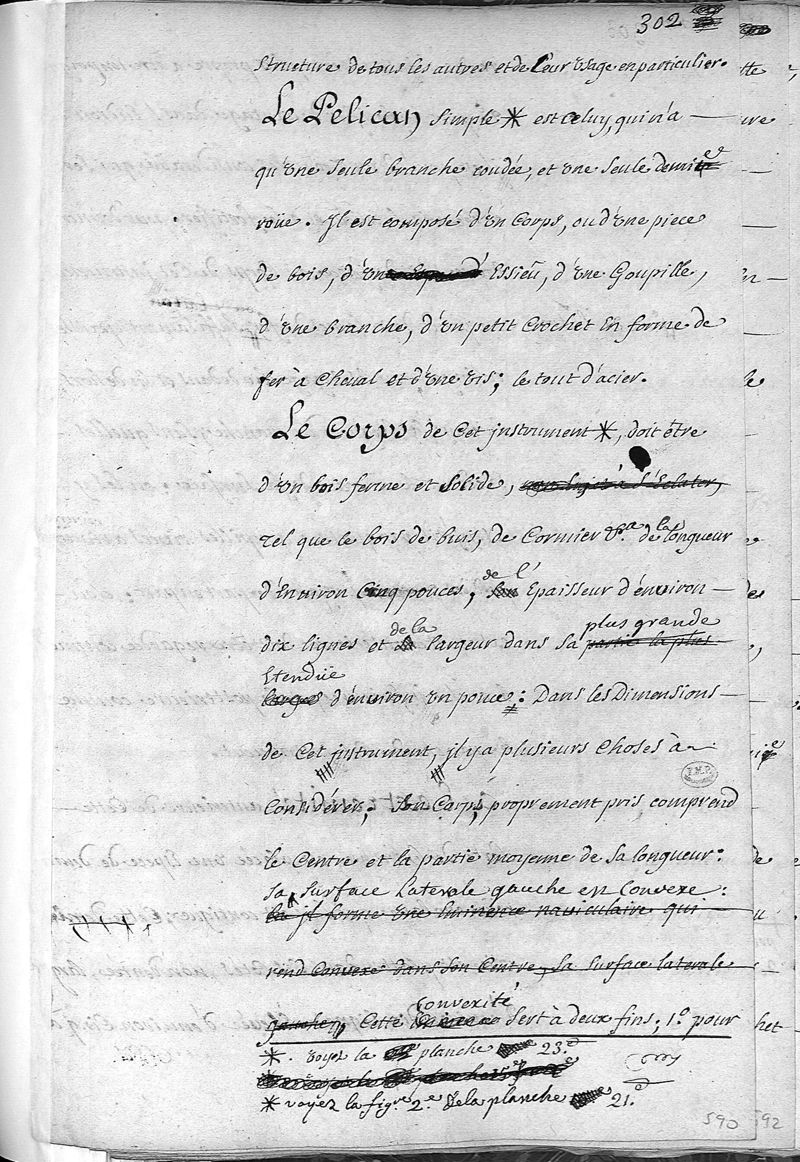 302
Structure de tous les autres et de leur usage en particulier.
Le Pelican simple * est celuy, qui n'a —
qu'une seule branche coudée, et une seule demie
roüe. Il est composé d'un Corps, ou d'une piece
de bois, d'un Essieu, d'une Goupille,
d'une branche, d'un petit Crochet En forme de
fer à Cheval et d'une vis; le tout d'acier.
Le Corps de Cet jnstrument *, doit être
d'un bois ferme et solide,
tel que le bois de buis, de Cormier &.a de la longueur
d'Environ Cinq pouces, de l' Epaisseur d'environ —
dix lignes et de la largeur dans sa plus grande
Etendüe d'environ un pouce: Dans les Dimensions —
de Cet jnstrument, jl y a plusieurs Choses à
Considérer; Son Corps, proprement pris comprend
le Centre et la partie moyenne de sa longueur:
sa surface Laterale gauche en Convexe:
la jl forme une Eminence naviculaire qui —
rend Convexe dans son Centre, sa surface laterale
gauche, Cette Convexité sert à deux fins, 1.o pour
* . voyez la planche 23.e
* voyez la fig.re 2.e de la planche 21.e
590
92